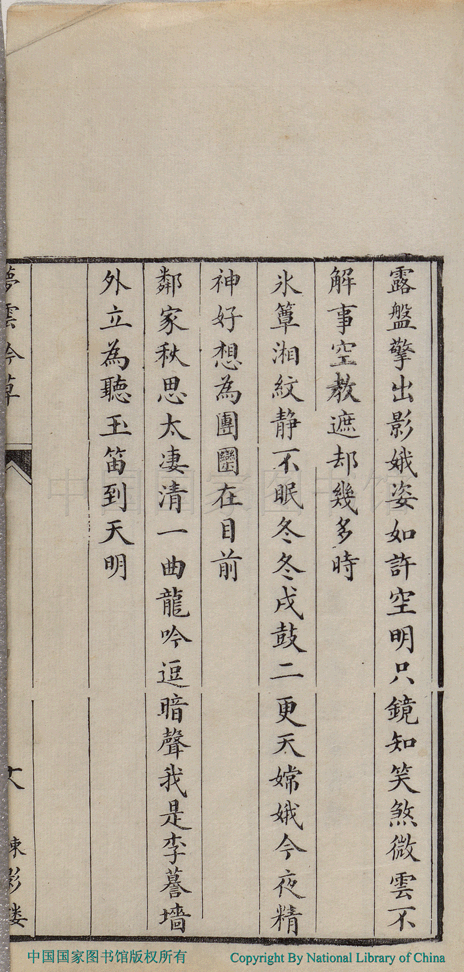 露盤擎出影娥姿如許空明只鏡知笑煞微雲不
解事空教遮却幾多時
氷簟湘紋静不眠冬冬戍鼓二更天嫦娥今夜精
神好想為團圞在目前
鄰家秋思太凄清一曲龍吟逗暗聲我是李謩墻
外立為聽玉笛到天明
夢雲吟草
中国国家图书馆
中国国家图书馆版权所有
Copyright By National Library of China